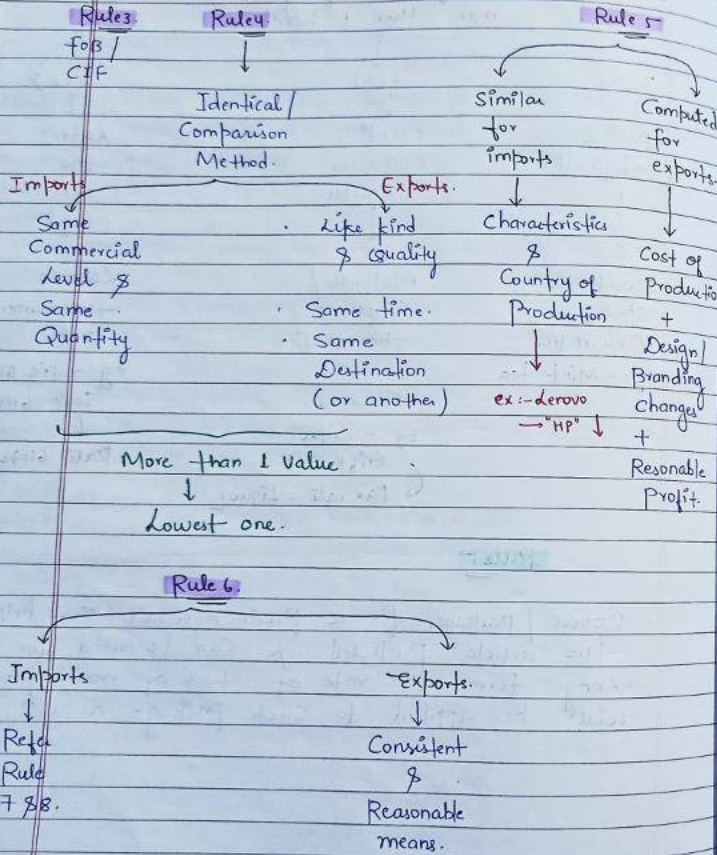 Rule3.
FOB /
CIF
Rule4.
Identical /
Comparison
Method.
Imports
Same
Commercial
Level &
Same
Quantity
Exports.
. Like kind
& Quality
. Same time.
. Same
Destination
(or another)
More than 1 value
Lowest one.
Rule 5
Similar
for
imports
Characteristics
&
Country of
Production
ex:- Lenovo
→ "HP" ↓
Computed
for
exports.
Cost of
Productio
+
Design/
Branding
Changes
+
Resonable
Profit.
Rule 6.
Imports
Refer
Rule
7 & 8.
Exports.
Consistent
&
Reasonable
means.